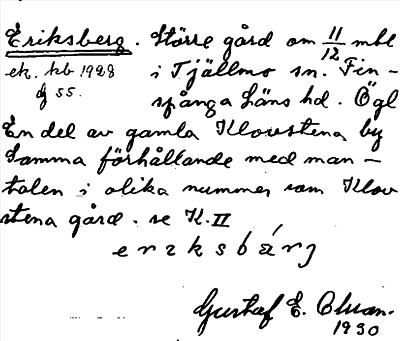 Eriksberg. Större gård om 11/12 mtl
ek. kb 1928
i Tjällmo sn. Fin-
sf 55.
spånga läns hd. Ögl
En del av gamla Klovstena by
Samma förhållande med man-
talen i olika nummer som Klov
stena gård. se K. II
erɪksbárj
Gustaf E. Olsson.
1930